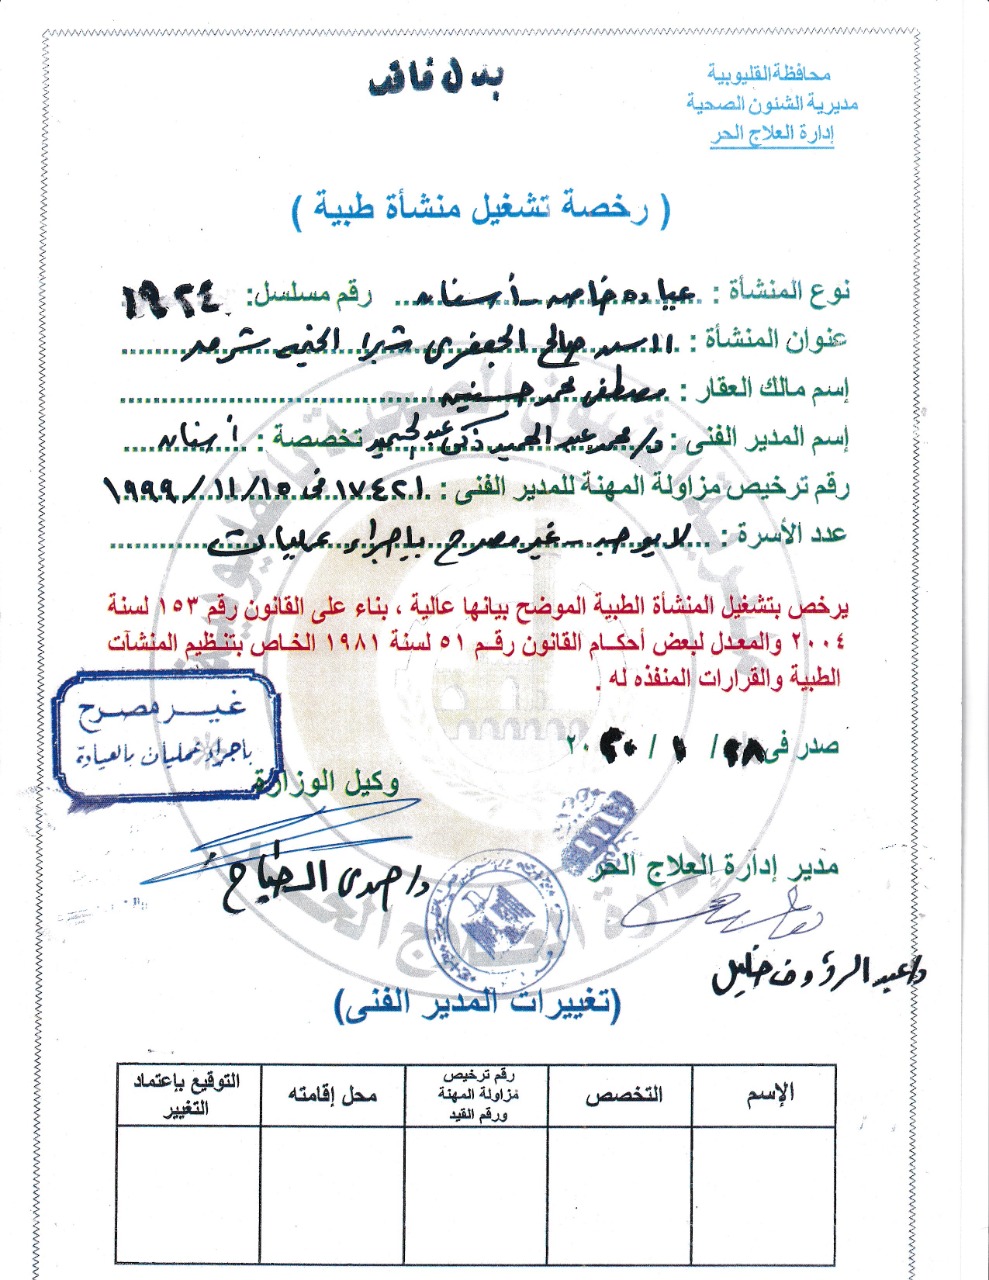 محافظة القليوبية
مديرية الشئون الصحية
إدارة العلاج الحر
بدل فاقد
( رخصة تشغيل منشأة طبية )
نوع المنشأة : عيادة خاصه - أسنان رقم مسلسل: ١٩٢٤
عنوان المنشأة : ١١ سيد صالح الجعفرى شبرا الخيمه شرق
إسم مالك العقار : مصطفى محمد حسنين
إسم المدير الفنى : د/ محمد عبد الحميد زكى تخصصة : أسنان
رقم ترخيص مزاولة المهنة للمدير الفنى : ١٧٤٢١ فى ١٥/ ١١/ ١٩٩٩
عدد الأسرة : لا يوجد - غير مصرح بإجراء عمليات
يرخص بتشغيل المنشأة الطبية الموضح بيانها عالية ، بناء على القانون رقم ١٥٣ لسنة
٢٠٠٤ والمعدل لبعض أحكام القانون رقم ٥١ لسنة ١٩٨١ الخاص بتنظيم المنشآت
الطبية والقرارات المنفذه له .
غير مصرح
باجراء عمليات بالعيادة
صدر فى ٢٨/ ١ / ٢٠٢٠
وكيل الوزارة
مدير إدارة العلاج الحر
د/ حمدى الطباخ
د/ عبد الرؤوف خليل
(تغييرات المدير الفنى)
الإسم التخصص رقم ترخيص مزاولة المهنة ورقم القيد محل إقامته التوقيع بإعتماد التغيير